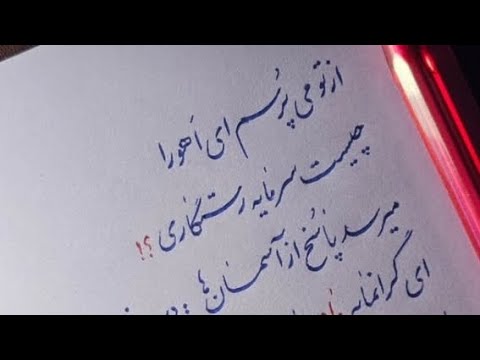 از تو می پرُسم ای اَهورا
چیست سرمایه رستگاری ؟!
میرسد پاسُخ از آسمان‌ها
ای گرانمایه